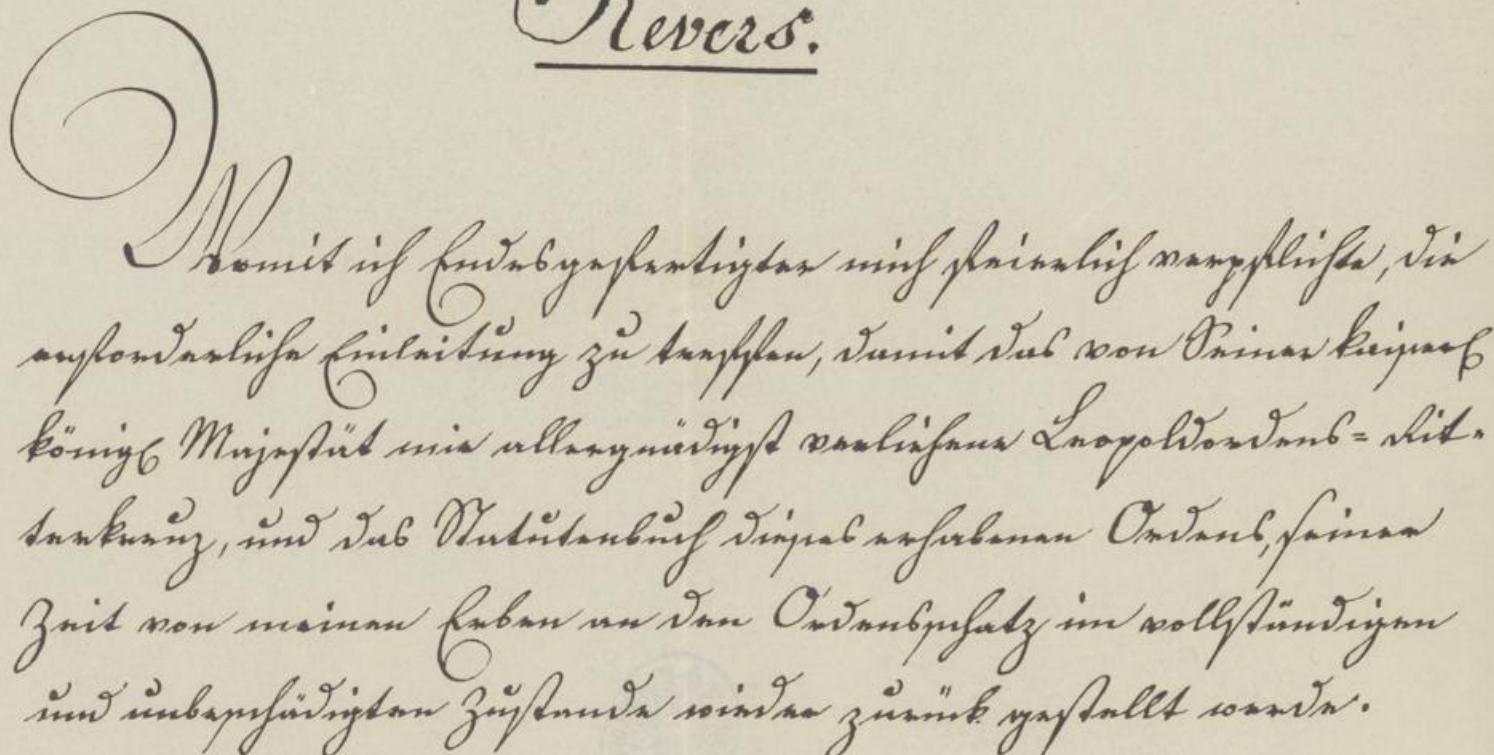 Revers.
Womit ich Endesgefertigter mich feierlich verpflichte, die
erforderliche Einleitung zu treffen, damit das von Seiner kaiserl
königl Majestät mir allergnädigst verliehene Leopoldordens= Rit=
terkreuz, und das Statutenbuch dieses erhabenen Ordens, seiner
Zeit von meinen Erben an den Ordensschatz im vollständigen
und unbeschädigten Zustande wieder zurück gestellt werde.